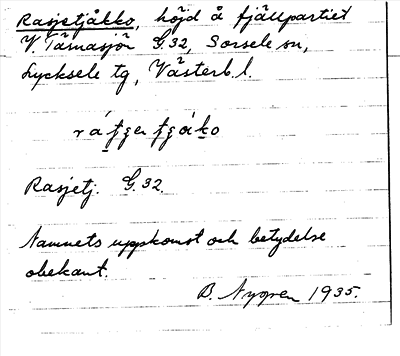 Rasjetjåkko, höjd å fjällpartiet
V. Tärnasjön G.32, Sorsele sn,
Lycksele tg, Västerb. l.
Rasjetj. G.32.
Namnets uppkomst och betydelse
obekant.
B. Nygren 1935.